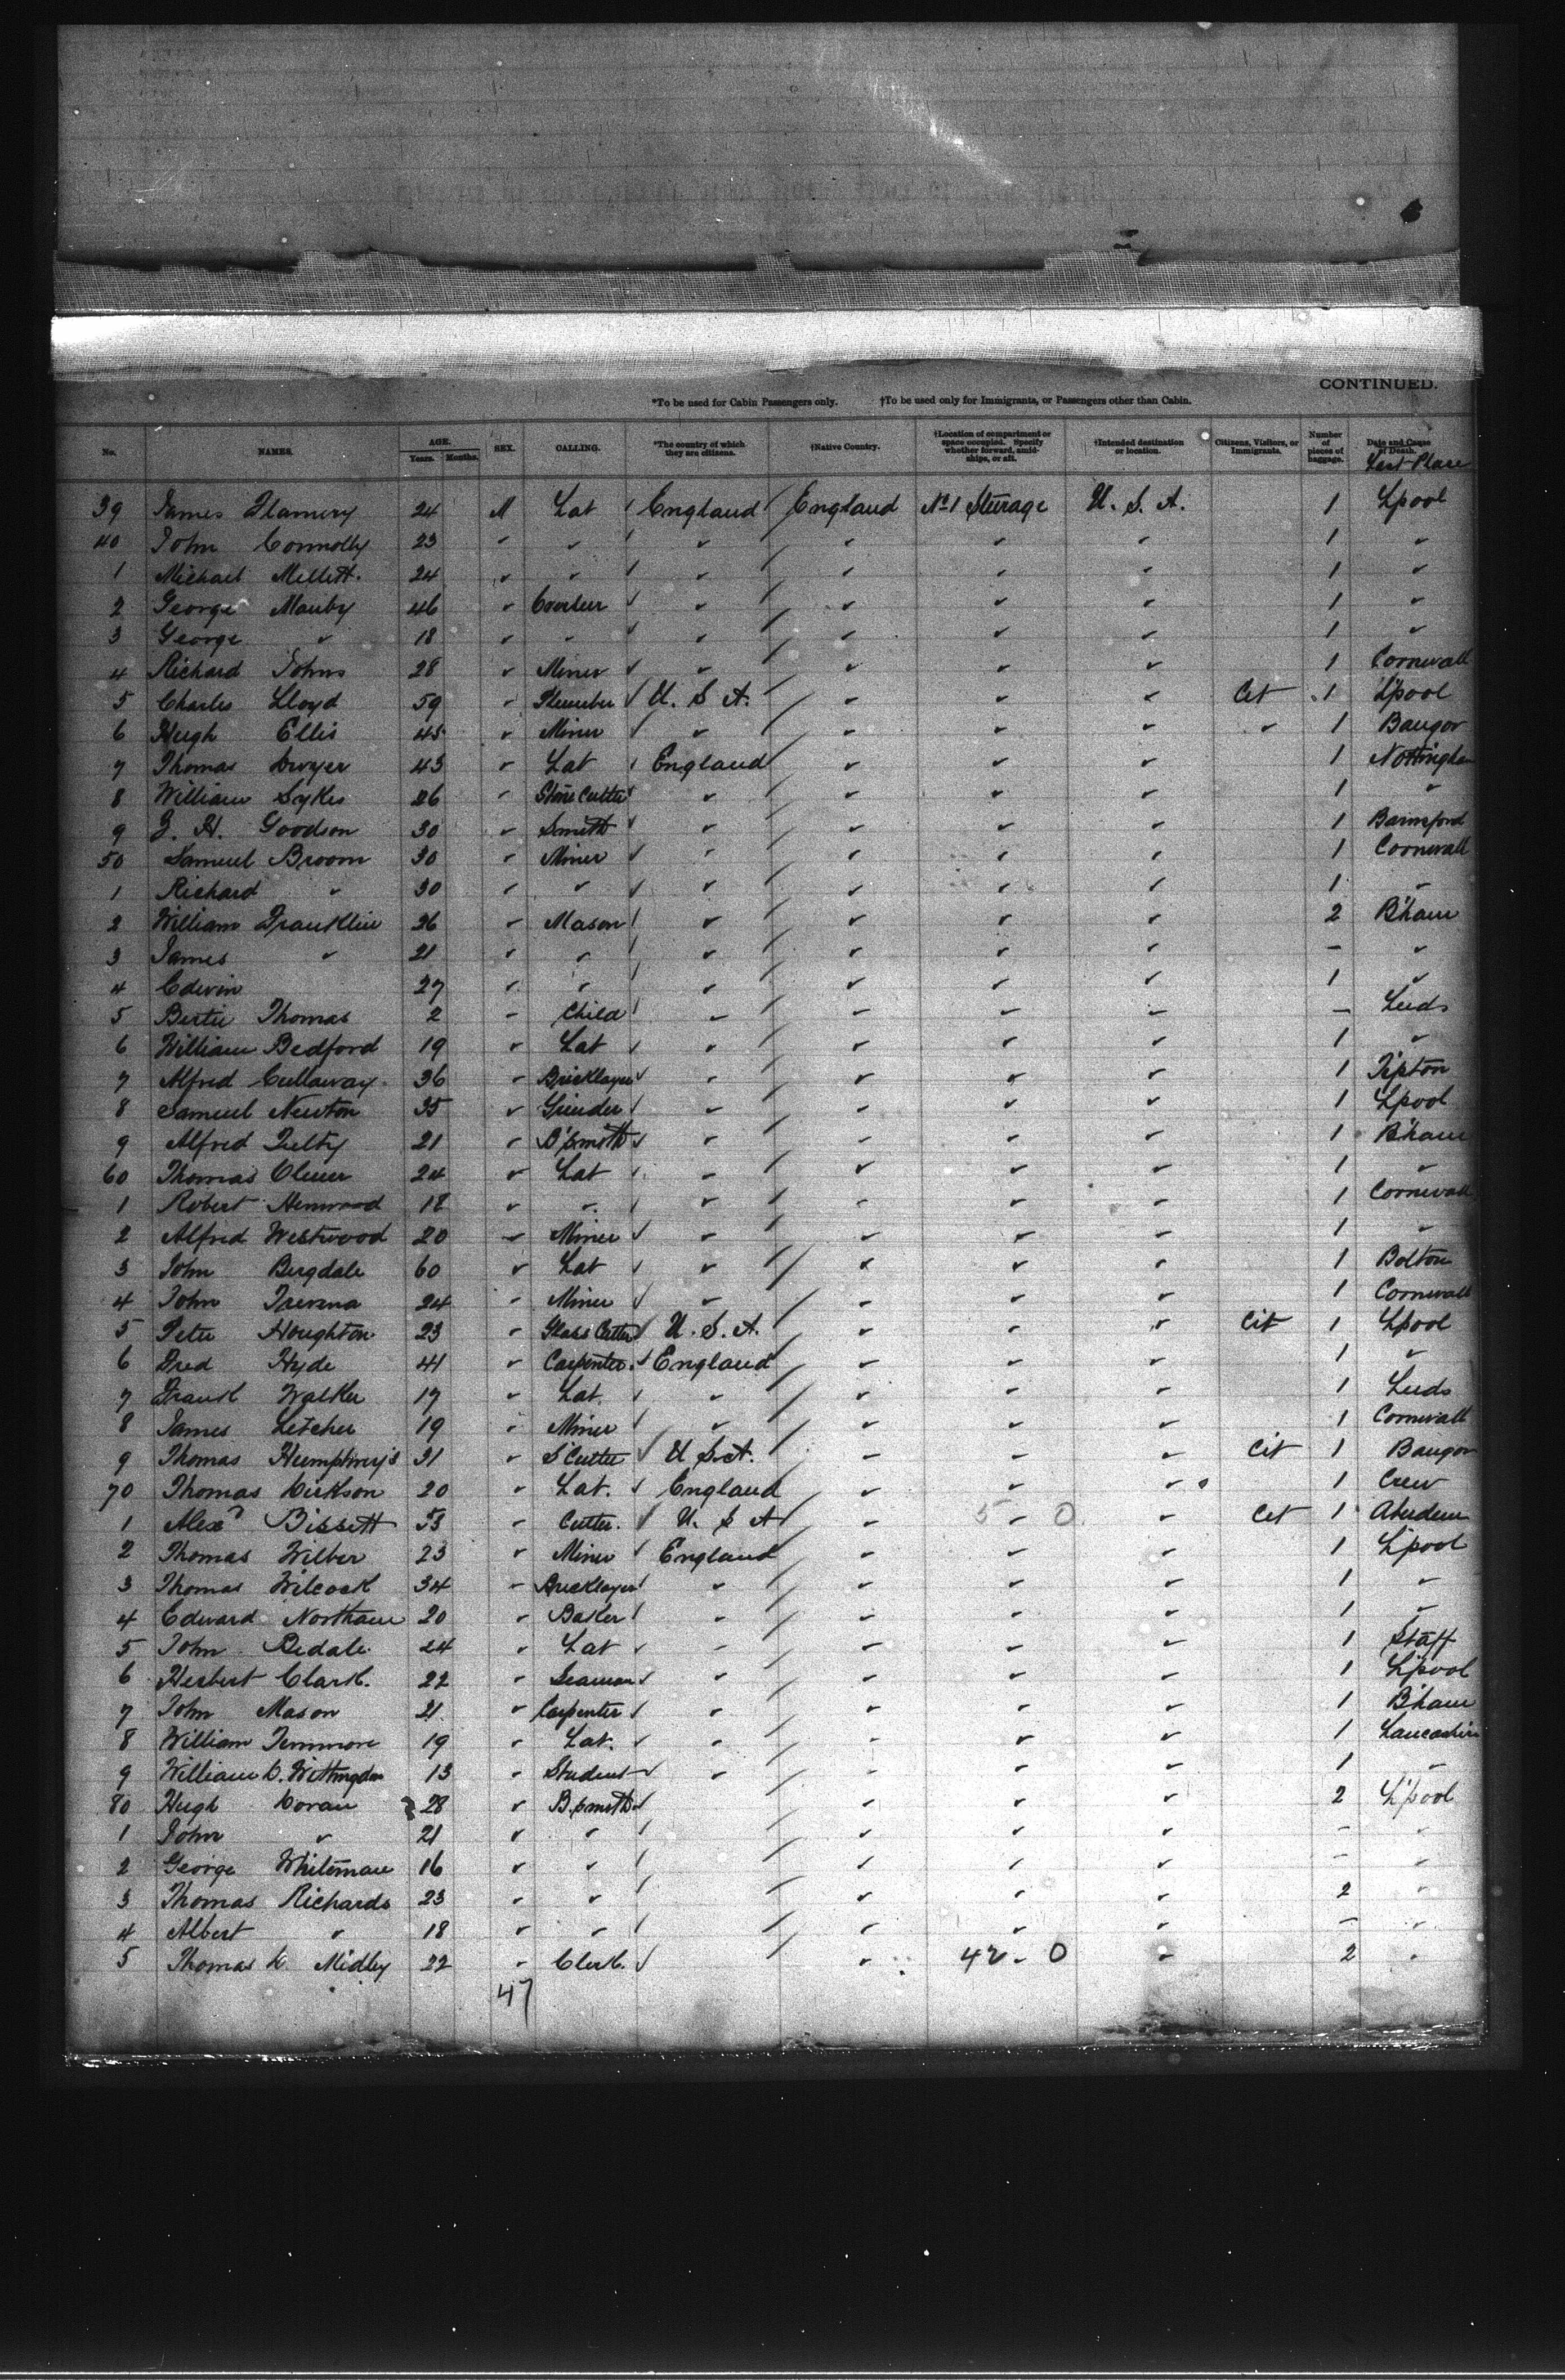 CONTINUED.
*To be used for Cabin Passengers only. †To be used only for Immigrants, or Passengers other than Cabin.
No. NAMES. AGE. Years. Months. SEX. CALLING. *The country of which they are citizens. †Native Country. †Location of compartment or space occupied. Specify whether forward, amidships, or aft. †Intended destination or location. Citizens, Visitors, or Immigrants. Number of pieces of baggage. Date and Cause of Death. Last Place
39 James Flamery 24 M Lab England England No 1 Sturage U. S. A. 1 Lpool
40 John Connolly 23 " " " " " " 1 "
1 Michael Mellett. 24 " " " " " " 1 "
2 George Manby 46 " " " " " 1 "
3 George " 18 " " " " " " 1 "
4 Richard Johns 28 " Miner " " " " 1 Cornwall
5 Charles Lloyd 59 " Plumber U. S A. " " " Cit 1 L'pool
6 Hugh Ellis 45 " Miner " " " " " 1 Bangor
7 Thomas Dwyer 43 " Lab England " " " 1 Nottingham
8 William Sykes 26 " Stone Cutter " " " " 1 "
9 J. H. Goodson 30 " Smith " " " " 1
50 Samuel Broom 30 " Miner " " " " 1 Cornwall
1 Richard " 30 " " " " " " 1 "
2 William Franklin 26 " Mason " " " " 2 B'ham
3 James " 21 " " " " " " - "
4 Edwin 27 " " " " " " 1 "
5 Bertie Thomas 2 " Child " " " " - Leeds
6 William Bedford 19 " Lab " " " " 1 "
7 Alfred Cullaway 36 " Bricklayer " " " " 1 Tipton
8 Samuel Newton 35 " Grinder " " " " 1 L'pool
9 Alfred 21 " B'smith " " " " 1 B'ham
60 Thomas 24 " Lab " " " " 1 "
1 Robert Henwood 18 " " " " " " 1 Cornwall
2 Alfred Westwood 20 " Miner " " " " 1 "
3 John Bergdale 60 " Lab " " " " 1 Bolton
4 John Trevena 24 " Miner " " " " 1 Cornwall
5 Peter Houghton 23 " Glass Cutter U. S. A. " " " Cit 1 L'pool
6 Fred Hyde 41 " Carpenter England " " " 1 "
7 Frank Walker 17 " Lab. " " " " 1 Leeds
8 James Letcher 19 " Miner " " " " 1 Cornwall
9 Thomas Humphreys 31 " S Cutter U S. A. " " " Cit 1 Bangor
70 Thomas Dickson 20 " Lab. England " " " 1 Crew
1 Alexr Bissett 53 " Cutter. U. S A " 5 - 0 " Cit 1 Aberdeen
2 Thomas Wilber 23 " Miner England " " " 1 L'pool
3 Thomas Wilcock 34 " Bricklayer " " " " 1 "
4 Edward Northam 20 " Baker " " " " 1 "
5 John Bedale 24 " Lab " " " " 1 Staff
6 Herbert Clark. 22 " Seaman " " " " 1 L'pool
7 John Mason 21 " Carpenter " " " " 1 B'ham
8 William Temmore 19 " Lab. " " " " 1 Lancashire
9 William D. 13 " Student " " " " 1 "
80 Hugh Doran 28 " B.smith " " " 2 L'pool
1 John " 21 " " " " " - "
2 George Whiteman 16 " " " " " - "
3 Thomas Richards 23 " " " " " 2 "
4 Albert " 18 " " " " " - "
5 Thomas H. Midley 22 " Clerk. " 42 - 0 " 2 "
47